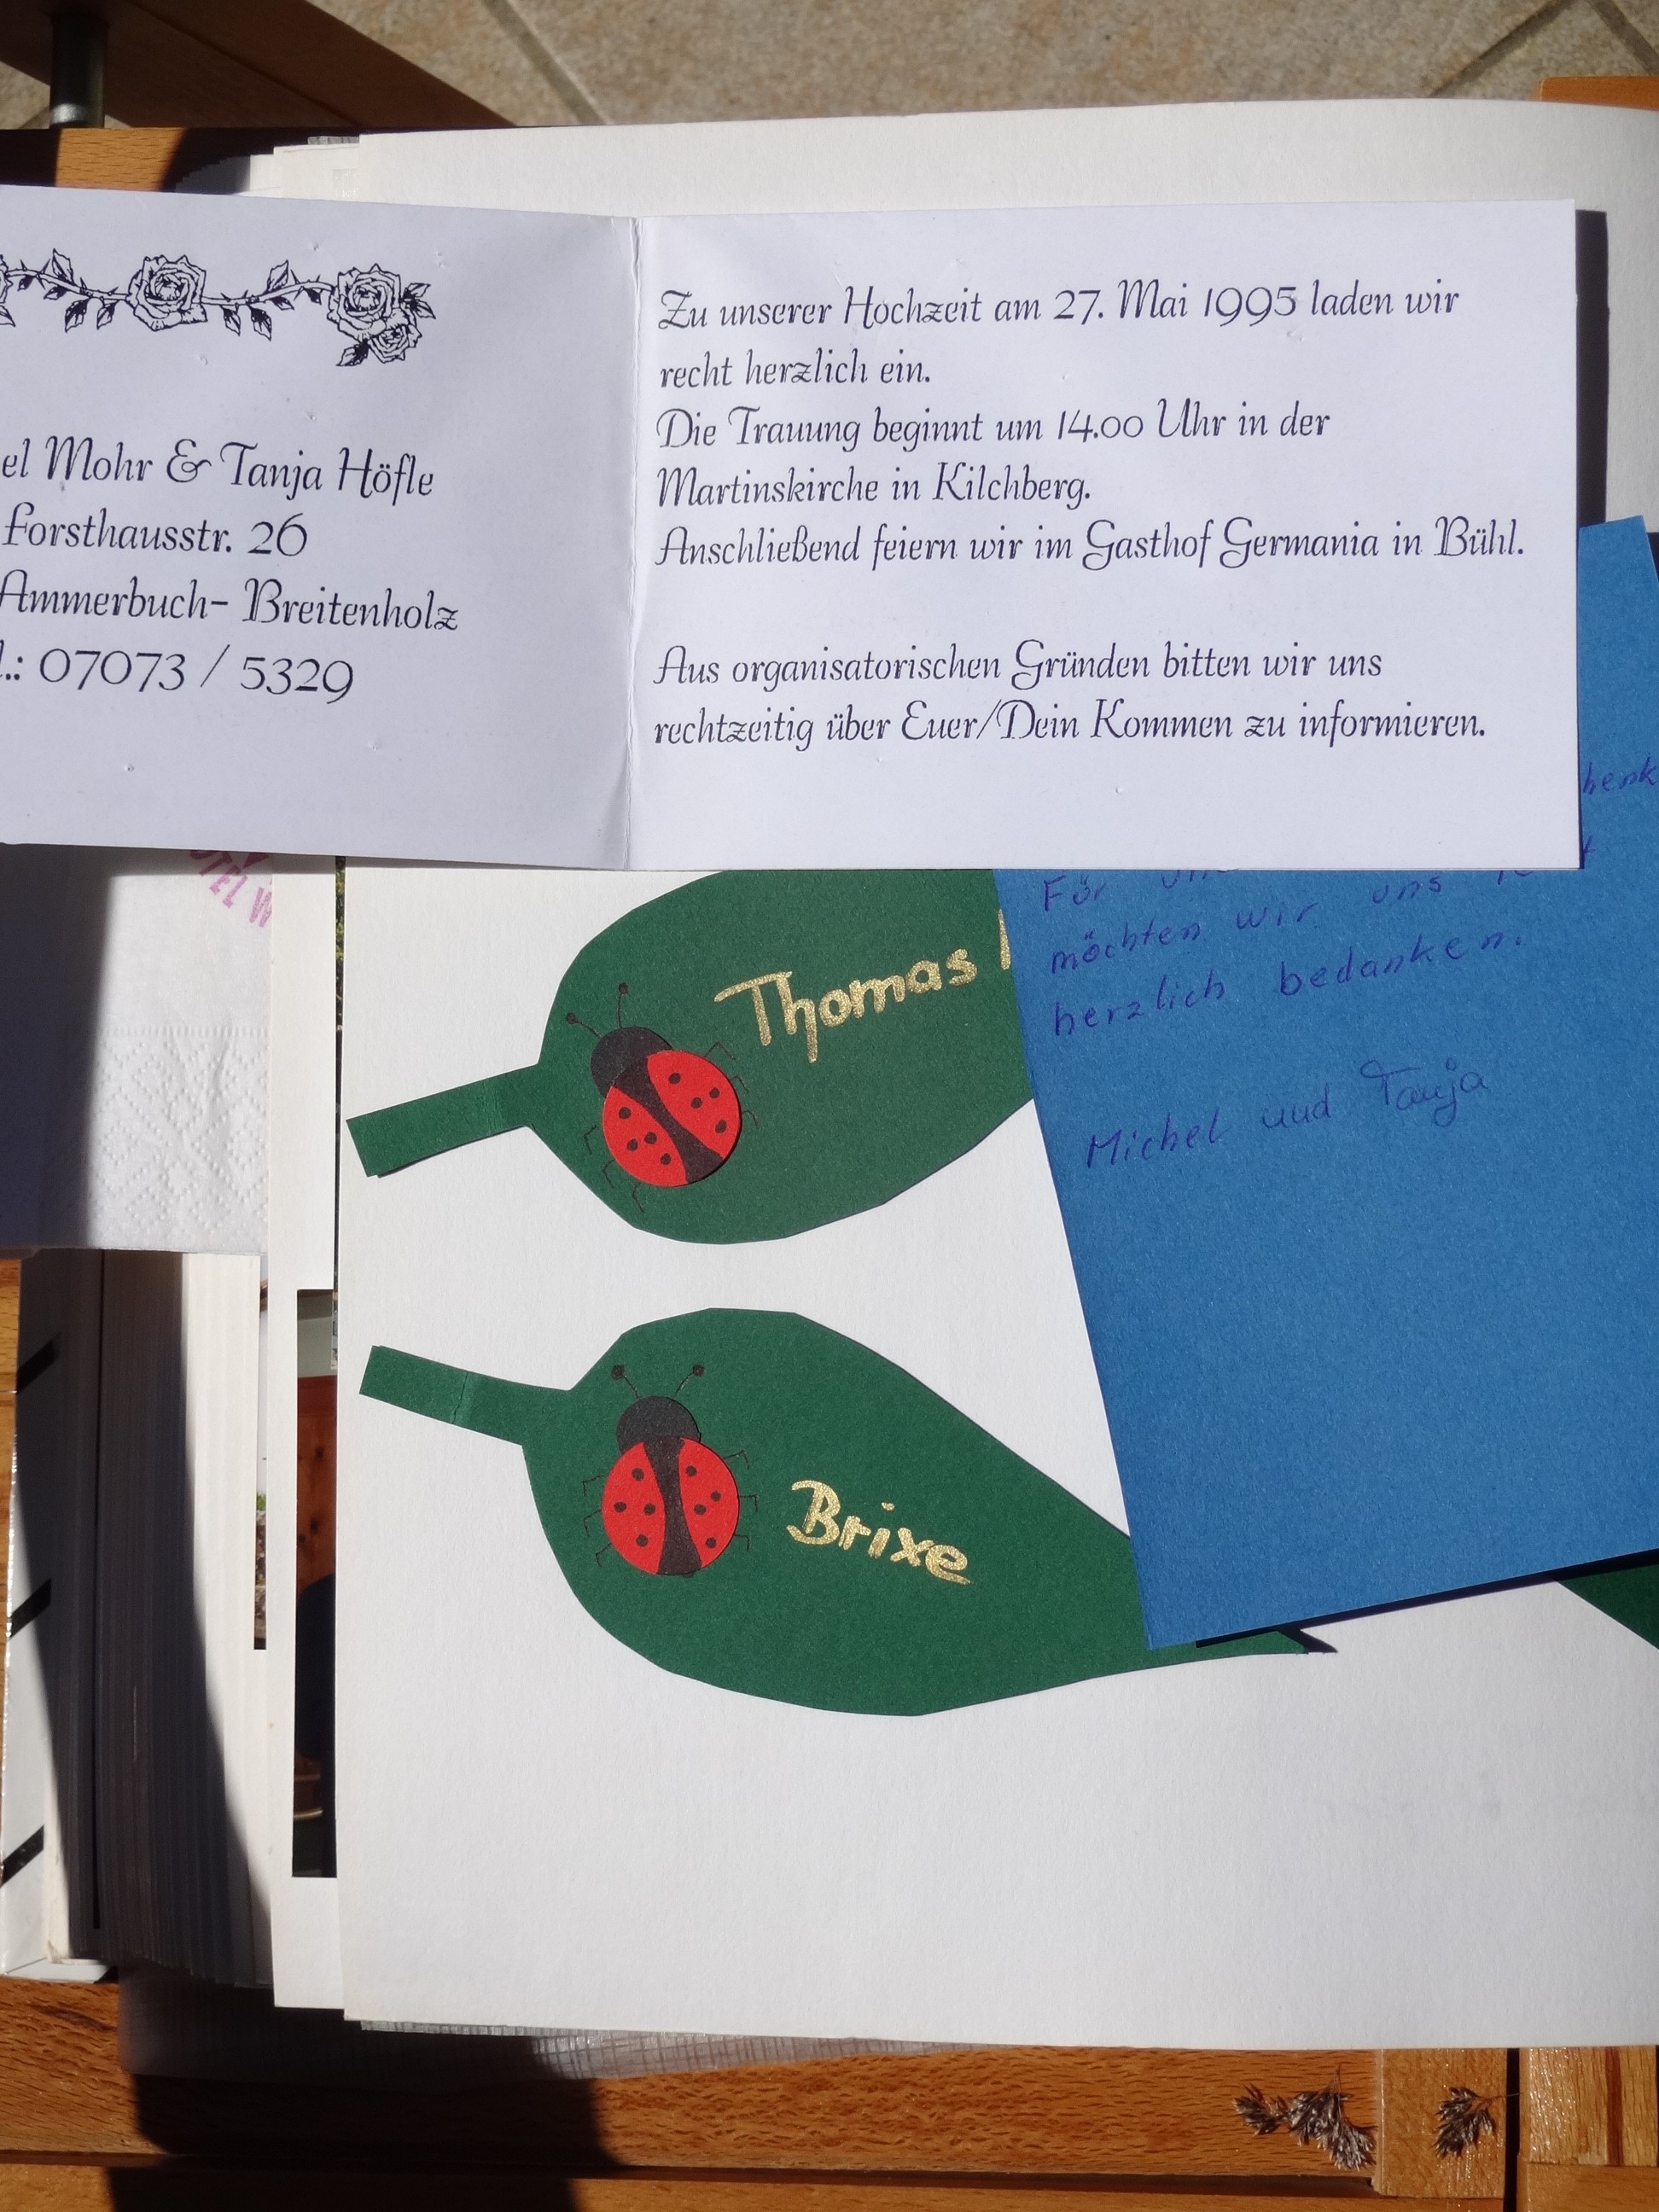 el Mohr & Tanja Höfle
Forsthausstr. 26
Ammerbuch- Breitenholz
l.: 07073 / 5329
Zu unserer Hochzeit am 27. Mai 1995 laden wir
recht herzlich ein.
Die Trauung beginnt um 14.00 Uhr in der
Martinskirche in Kilchberg.
Anschließend feiern wir im Gasthof Germania in Bühl.
Aus organisatorischen Gründen bitten wir uns
rechtzeitig über Euer/Dein Kommen zu informieren.
henk
Für
möchten wir uns
herzlich bedanken.
Michel und Tanja
Thomas
Brixe
OTEL W